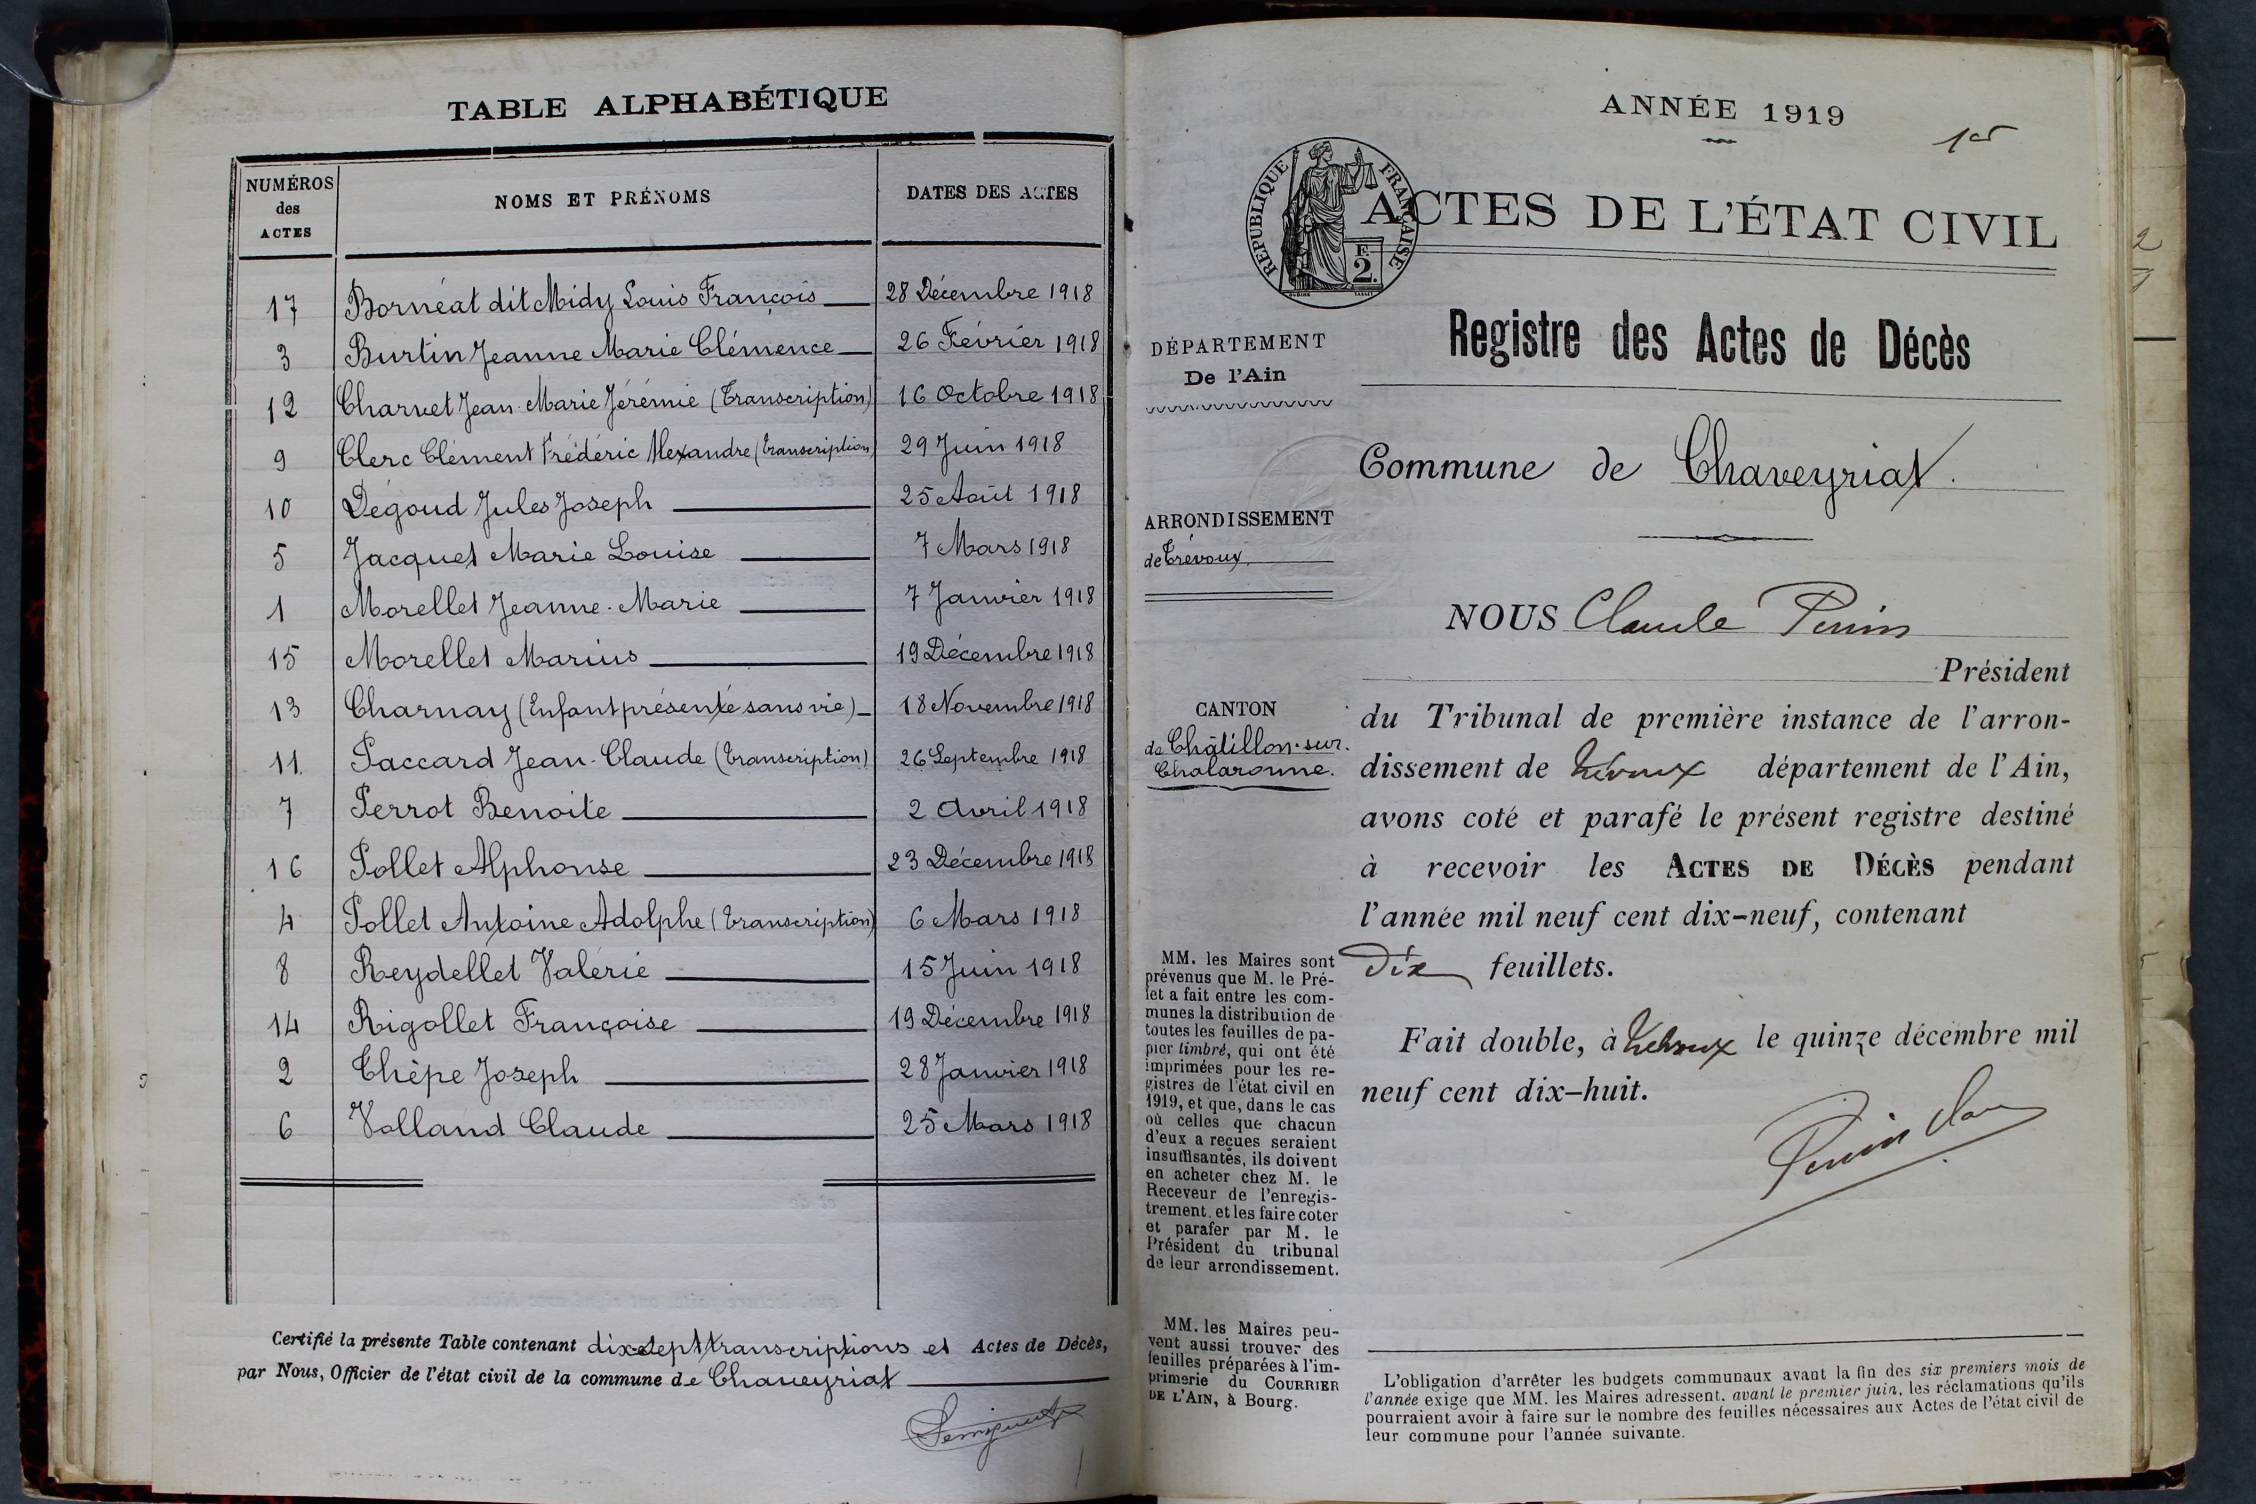 TABLE ALPHABÉTIQUE
NUMÉROS des ACTES NOMS ET PRÉNOMS DATES DES ACTES
17 Bornéat dit Midy Louis François 28 Décembre 1918
3 Burtin Jeanne Marie Clémence 26 Février 1918
12 Charvet Jean Marie Jérémie (Transcription) 16 Octobre 1918
9 Clerc Clément Frédéric Alexandre (transcription) 29 Juin 1918
10 Dégoud Jules Joseph 25 Août 1918
5 Jacquet Marie Louise 7 Mars 1918
1 Morellet Jeanne-Marie 7 Janvier 1918
15 Morellet Marius 19 Décembre 1918
13 Charnay (Enfant présenté sans vie) 18 Novembre 1918
11 Paccard Jean-Claude (transcription) 26 Septembre 1918
7 Perrot Benoite 2 Avril 1918
16 Pollet Alphonse 23 Décembre 1918
4 Pollet Antoine Adolphe (transcription) 6 Mars 1918
8 Reydellet Valérie 15 Juin 1918
14 Rigollet Françoise 19 Décembre 1918
2 Chèpe Joseph 28 Janvier 1918
6 Volland Claude 25 Mars 1918
Certifié la présente Table contenant dix-sept transcriptions et Actes de Décès,
par Nous, Officier de l'état civil de la commune de Chaveyriat
ANNÉE 1919
1er
RÉPUBLIQUE FRANÇAISE
F. 2
ACTES DE L'ÉTAT CIVIL
Registre des Actes de Décès
DÉPARTEMENT
De l'Ain
Commune de Chaveyriat.
ARRONDISSEMENT
de Trévoux
CANTON
de Châtillon-sur-
Chalaronne.
NOUS Claude Perrin
Président
du Tribunal de première instance de l'arron-
dissement de Trévoux département de l'Ain,
avons coté et parafé le présent registre destiné
à recevoir les ACTES DE DÉCÈS pendant
l'année mil neuf cent dix-neuf, contenant
Dix feuillets.
Fait double, à Trévoux le quinze décembre mil
neuf cent dix-huit.
Perrin Clau
MM. les Maires sont
prévenus que M. le Pré-
fet a fait entre les com-
munes la distribution de
toutes les feuilles de pa-
pier timbré, qui ont été
imprimées pour les re-
gistres de l'état civil en
1919, et que, dans le cas
où celles que chacun
d'eux a reçues seraient
insuffisantes, ils doivent
en acheter chez M. le
Receveur de l'enregis-
trement, et les faire coter
et parafer par M. le
Président du tribunal
de leur arrondissement.
MM. les Maires peu-
vent aussi trouver des
feuilles préparées à l'im-
primerie du COURRIER
DE L'AIN, à Bourg.
L'obligation d'arrêter les budgets communaux avant la fin des six premiers mois de
l'année exige que MM. les Maires adressent, avant le premier juin, les réclamations qu'ils
pourraient avoir à faire sur le nombre des feuilles nécessaires aux Actes de l'état civil de
leur commune pour l'année suivante.